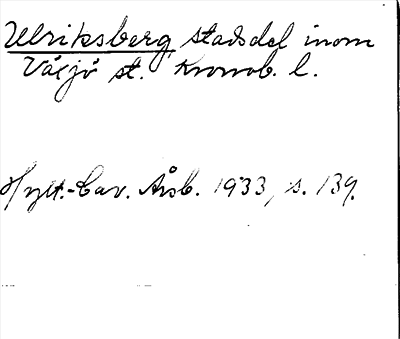 Ulriksberg, stadsdel inom
Växjö st. Kronob. l.
Hylt.-Cav. Årsb. 1933, s. 139.